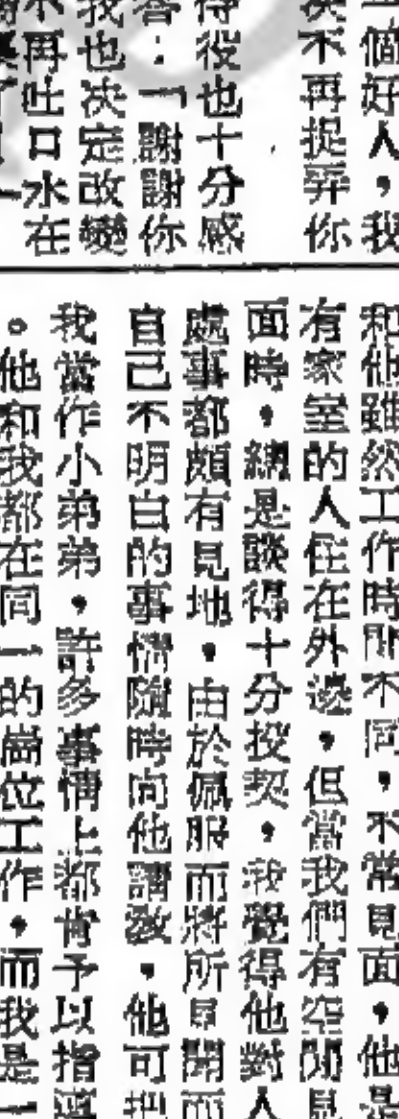 個好人，我
决不再捉弄你
待役也十分感
答：「謝謝你
我也决定改變
不再吐口水在
和他雖然工作時間不同，不常見面，他是
有家室的人住在外邊，但當我們有空閒見
面時，總是談得十分投契，我覺得他對人
處事都頗有見地，由於佩服而將所見聞而
自己不明白的事情隨時向他請教，他可把
我當作小弟弟，許多事情上都肯予以指導
。他和我都在同一的崗位工作，而我是一